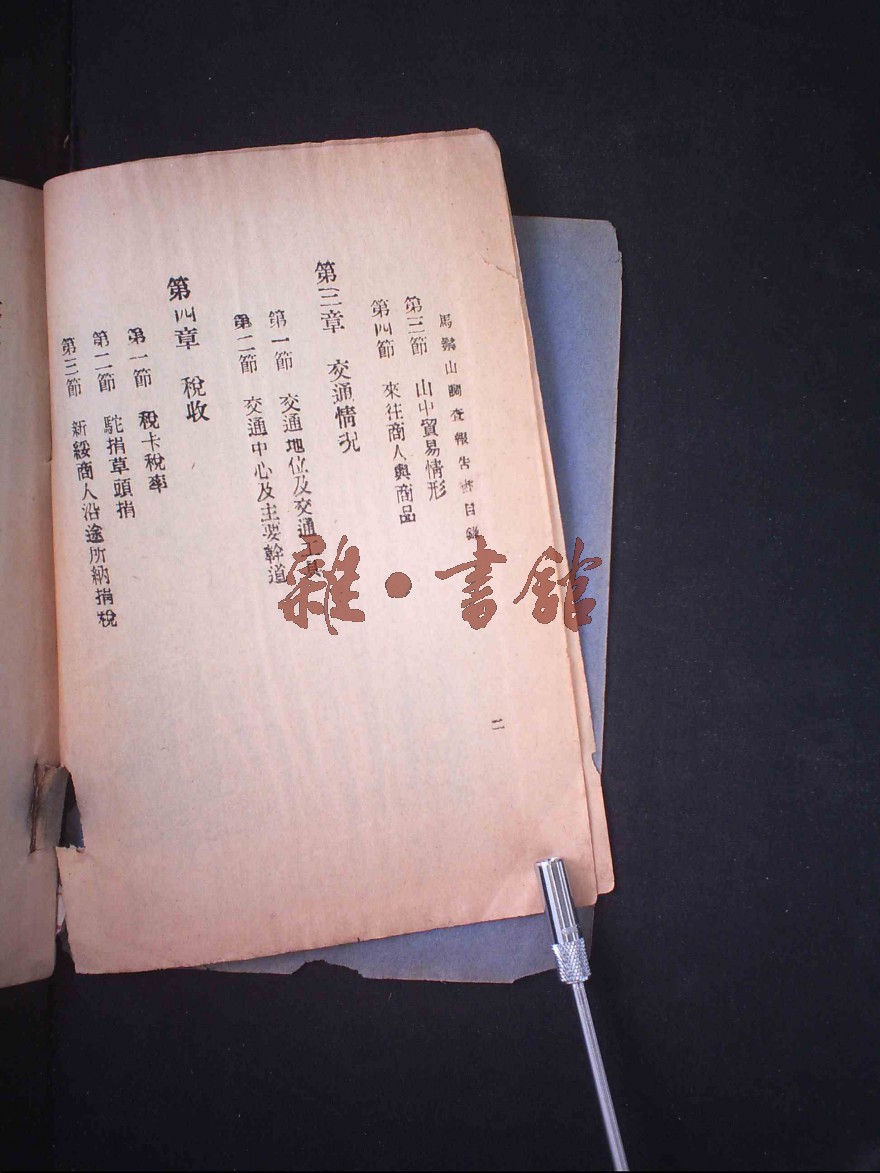 馬鬃山調查報告書目錄
第三節 山中貿易情形
第四節 來往商人與商品
第三章 交通情況
第一節 交通地位及交通工具
第二節 交通中心及主要幹道
第四章 稅收
第一節 稅卡稅率
第二節 駝捐草頭捐
第三節 新綏商人沿途所納捐稅
二
雜·書館